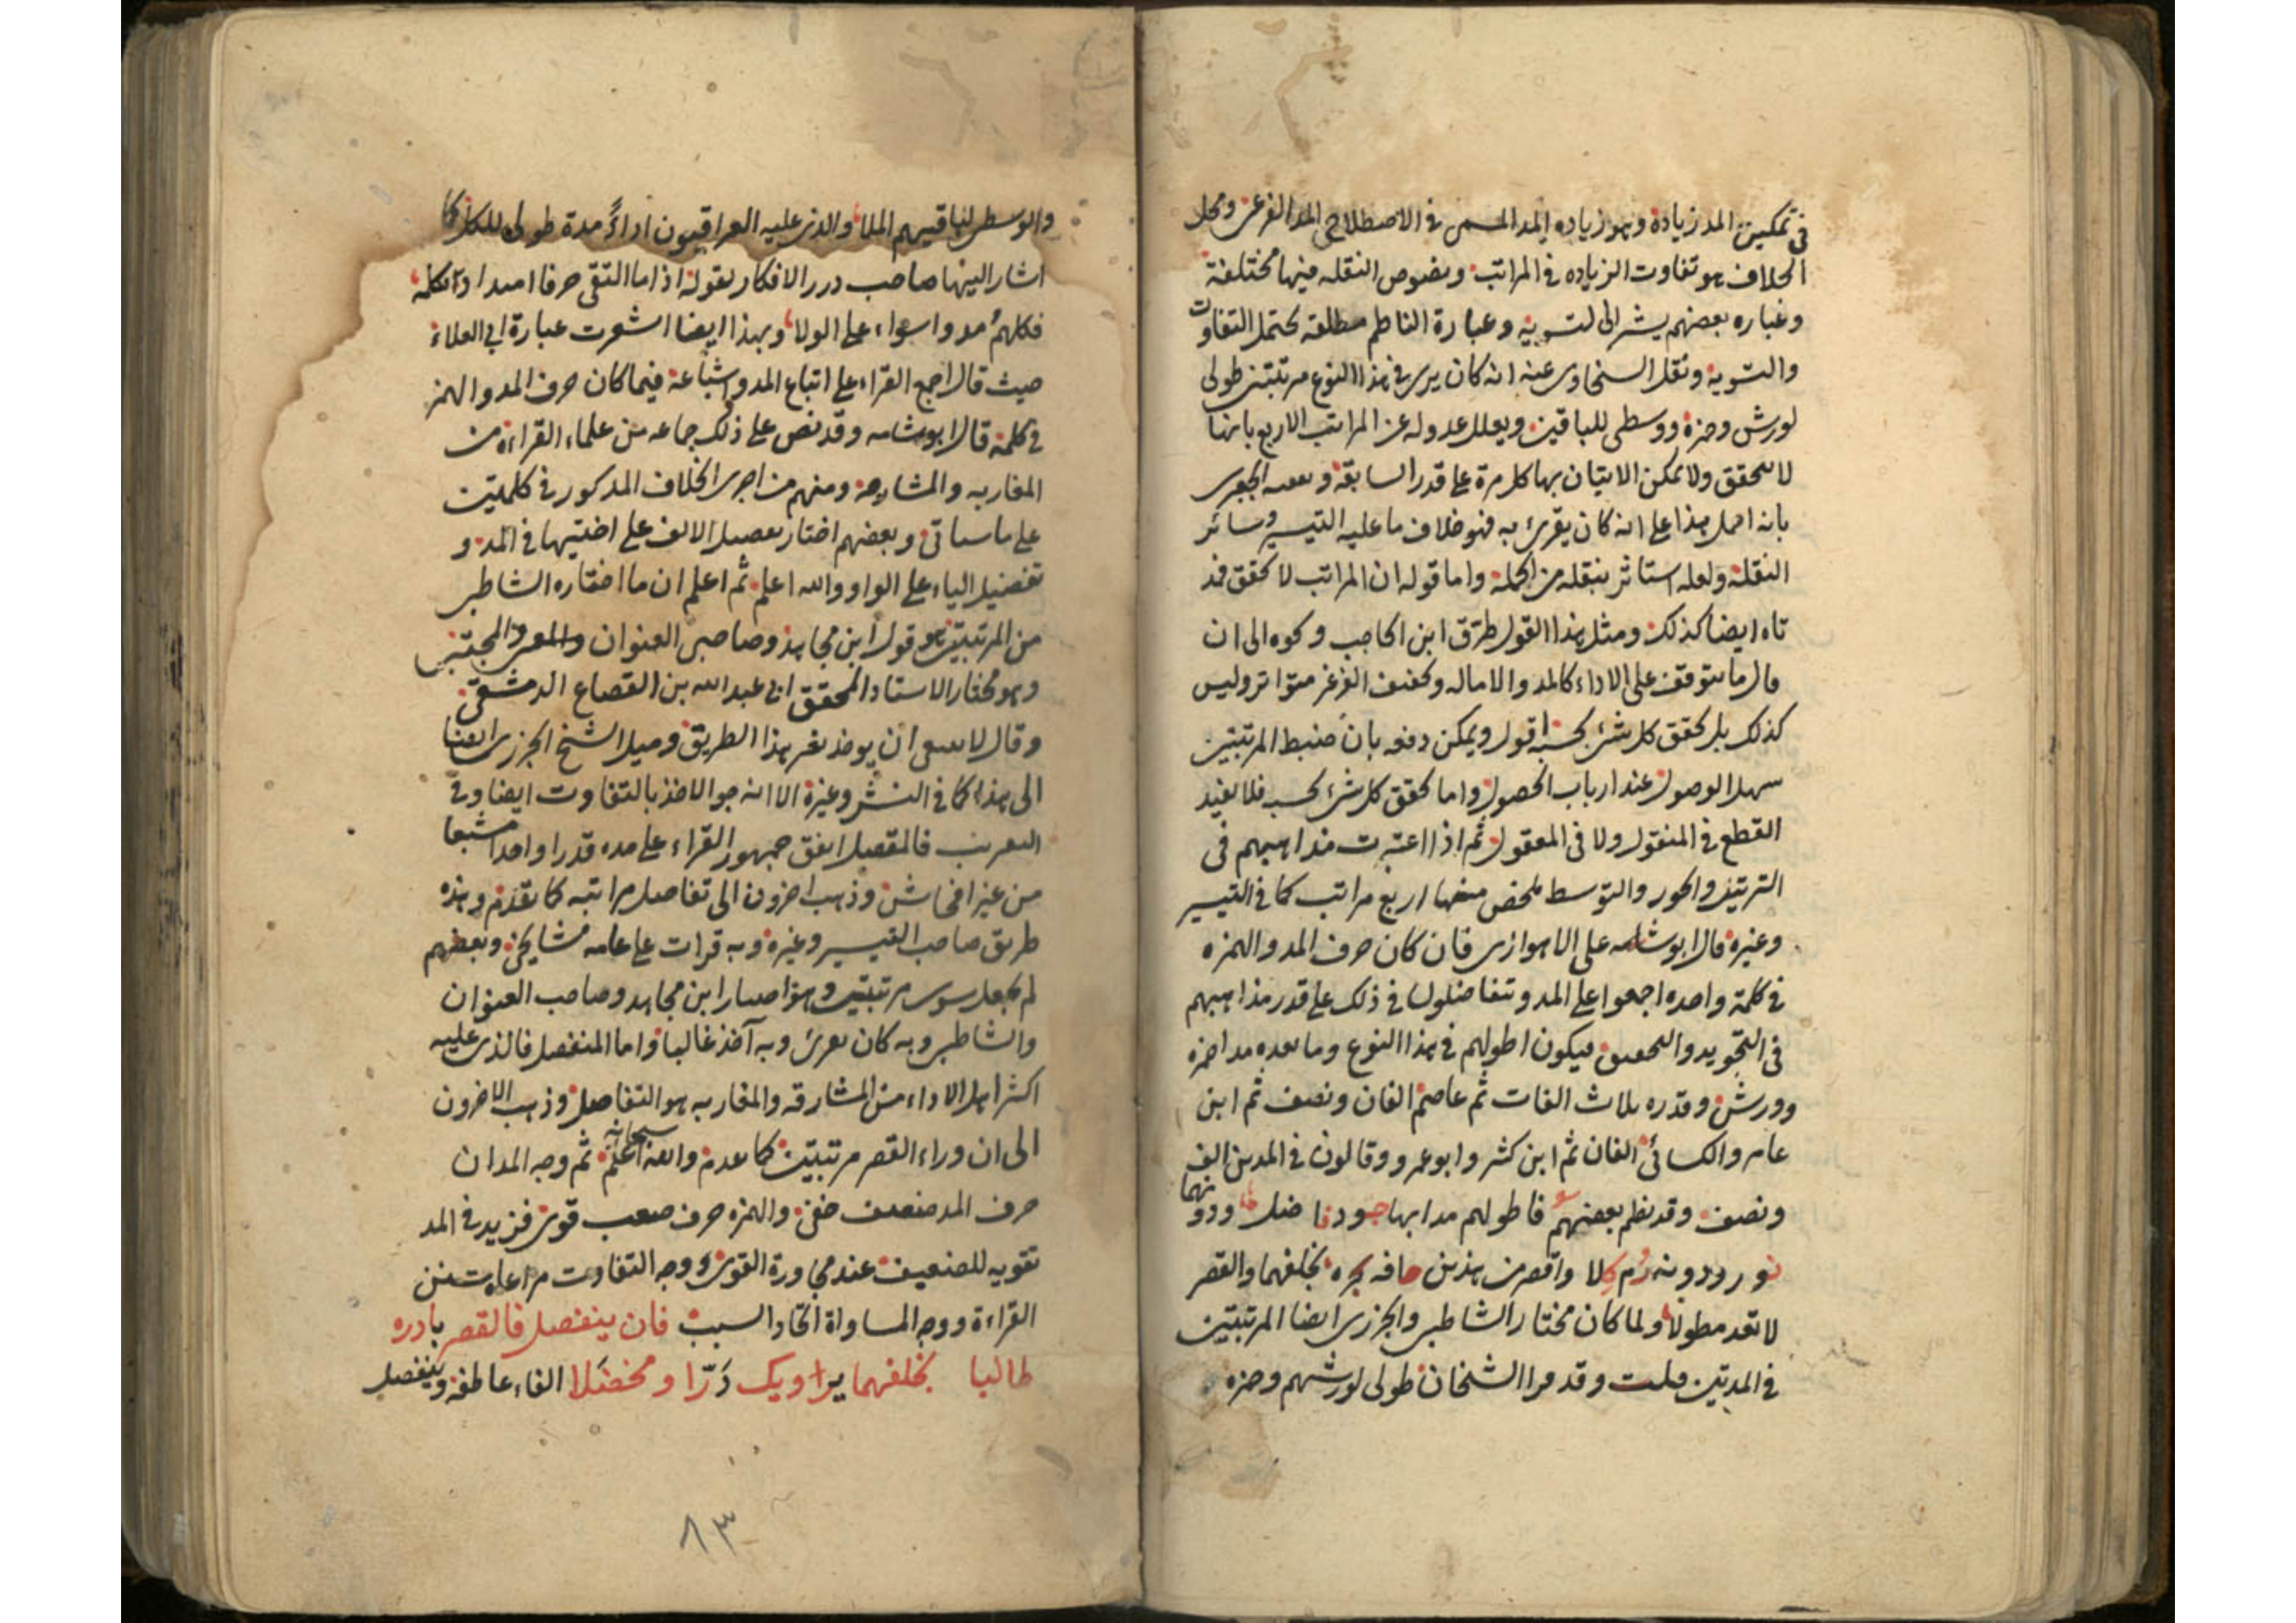 في تمكين المد زيادة وهو زياده المد المسمى في الاصطلاح المد الفرعي ومحل
الخلاف هو تفاوت الزياده في المراتب ونصوص النقله فيها مختلفة
وعباره بعضهم يشير الى التسويه وعبارة الناظم مطلقه تحتمل التفاوت
والتسوية ونقل السخاوى عنه انه كان يرى في هذا النوع مرتبتين طولى
لورش وحمزة ووسطى للباقين ويعلل عدوله عن المراتب الاربع بانها
لا تتحقق ولا يمكن الاتيان بها كل مرة على قدر السابقة وتعقبه الجعبرى
بانه احمل هذا على انه كان يقرئ به فهو خلاف ما عليه التيسير وسائر
النقلة ولعله استاثر بنقله من الجملة واما قوله ان المراتب لا تحقق فمد
تاه ايضا كذلك ومثل هذا القول طرق ابن الحاجب ونحوه الى ان
قال ما يتوقف على الاداء كالمد والاماله وتخفيف الهمز غير متواتر وليس
كذلك بل تحقق كل شئ بحسبه اقول ويمكن دفعه بان ضبط المرتبتين
سهل الوصول عند ارباب الحصول واما تحقق كل شئ بحسبه فلا يفيد
القطع في المنقول ولا في المعقول ثم اذا اعتبرت مذاهبهم في
الترتيل والحدر والتوسط تلخص منها اربع مراتب كما في التيسير
وغيره قال ابو شامه على الاهوازى فان كان حرف المد والهمزه
في كلمة واحده اجمعوا على المد وتفاضلوا في ذلك على قدر مذاهبهم
في التجويد والتحقيق فيكون اطولهم في هذا النوع وما بعده مدا حمزه
وورش وقدره ثلاث الفات ثم عاصم الفان ونصف ثم ابن
عامر والكسائى الفان ثم ابن كثير وابو عمرو وقالون في المدين الف
ونصف وقد نظم بعضهم فاطولهم مدا بها جود فاضل ودونهما
نور ودونه رم كلا واقصر هذين حافه بجره بخلفهما والقصر
لا تعد مطولا ولما كان مختار الشاطبي والجزرى ايضا المرتبتين
في المدتين قلت وقد مرا الشيخان طولى لورشهم وحمزه
والوسطى لباقيهم الملا والذى عليه العراقيون اداء مدة طولى للكل كما
اشار اليها صاحب درر الافكار بقوله اذا ما التقى حرفا امتداد بكلمة
فكلهم مدوا سواء على الولا وبهذا ايضا اشعرت عبارة ابي العلاء
حيث قال اجمع القراء على اتباع المد واشباعه فيما كان حرف المد والهمز
في كلمة قال ابو شامه وقد نص على ذلك جماعه من علماء القراءة من
المغاربه والمشارقه ومنهم من اجرى الخلاف المذكور في كلمتين
على ما سياتى وبعضهم اختار تفضيل الالف على اختيها في المد و
تفضيل الياء على الواو والله اعلم ثم اعلم ان ما اختاره الشاطبى
من المرتبتين هو قول ابن مجاهد وصاحب العنوان والمجتبى
وهو مختار الاستاد المحقق ابى عبد الله بن القصاع الدمشقى
وقال لا ينبغى ان يوخذ بغير هذا الطريق وميل الشيخ الجزرى ايضا
الى هذا كما في النشر وغيره الا انه جوز الاخذ بالتفاوت ايضا وفي
التقريب فالمتصل اتفق جمهور القراء على مده قدرا واحدا مشبعا
من غير افحاش وذهب اخرون الى تفاضل مراتبه كما تقدم وهذه
طريق صاحب التيسير وغيره وبه قرات على عامه مشايخى وبعضهم
لم يجعل سوى مرتبتين وهو اختيار ابن مجاهد وصاحب العنوان
والشاطبى وبه كان يقرئ وبه آخذ غالبا واما المنفصل فالذى عليه
اكثر اهل الاداء من المشارقه والمغاربه هو التفاضل وذهب الاخرون
الى ان وراء القصر مرتبتين كما تقدم والله سبحانه اعلم ثم وجه المد ان
حرف المد ضعيف خفى والهمزه حرف صعب قوى فزيد في المد
تقويه للضعيف عند مجاورة القوى ووجه التفاوت مراعاة سنن
القراءة ووجه المساواة اتحاد السبب فان ينفصل فالقصر بادره
طالبا بخلفهما يرويك درا ومخضلا الفاء عاطفه وينفصل
٨٣